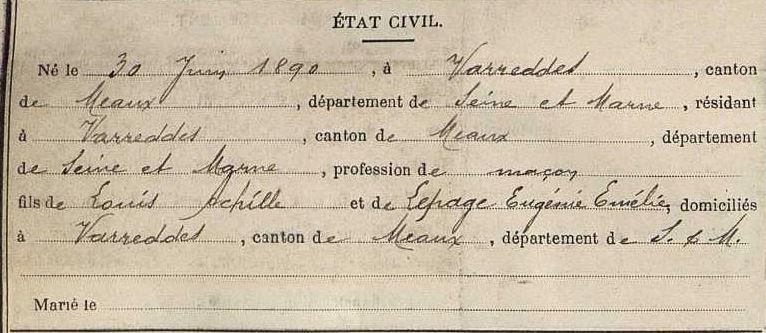 ÉTAT CIVIL.
Né le 30 Juin 1890, à Varreddes, canton
de Meaux, département de Seine et Marne, résidant
à Varreddes, canton de Meaux, département
de Seine et Marne, profession de maçon
fils de Louis Achille et de Lepage Eugénie Emélie, domiciliés
à Varreddes, canton de Meaux, département de S. & M.
Marié le